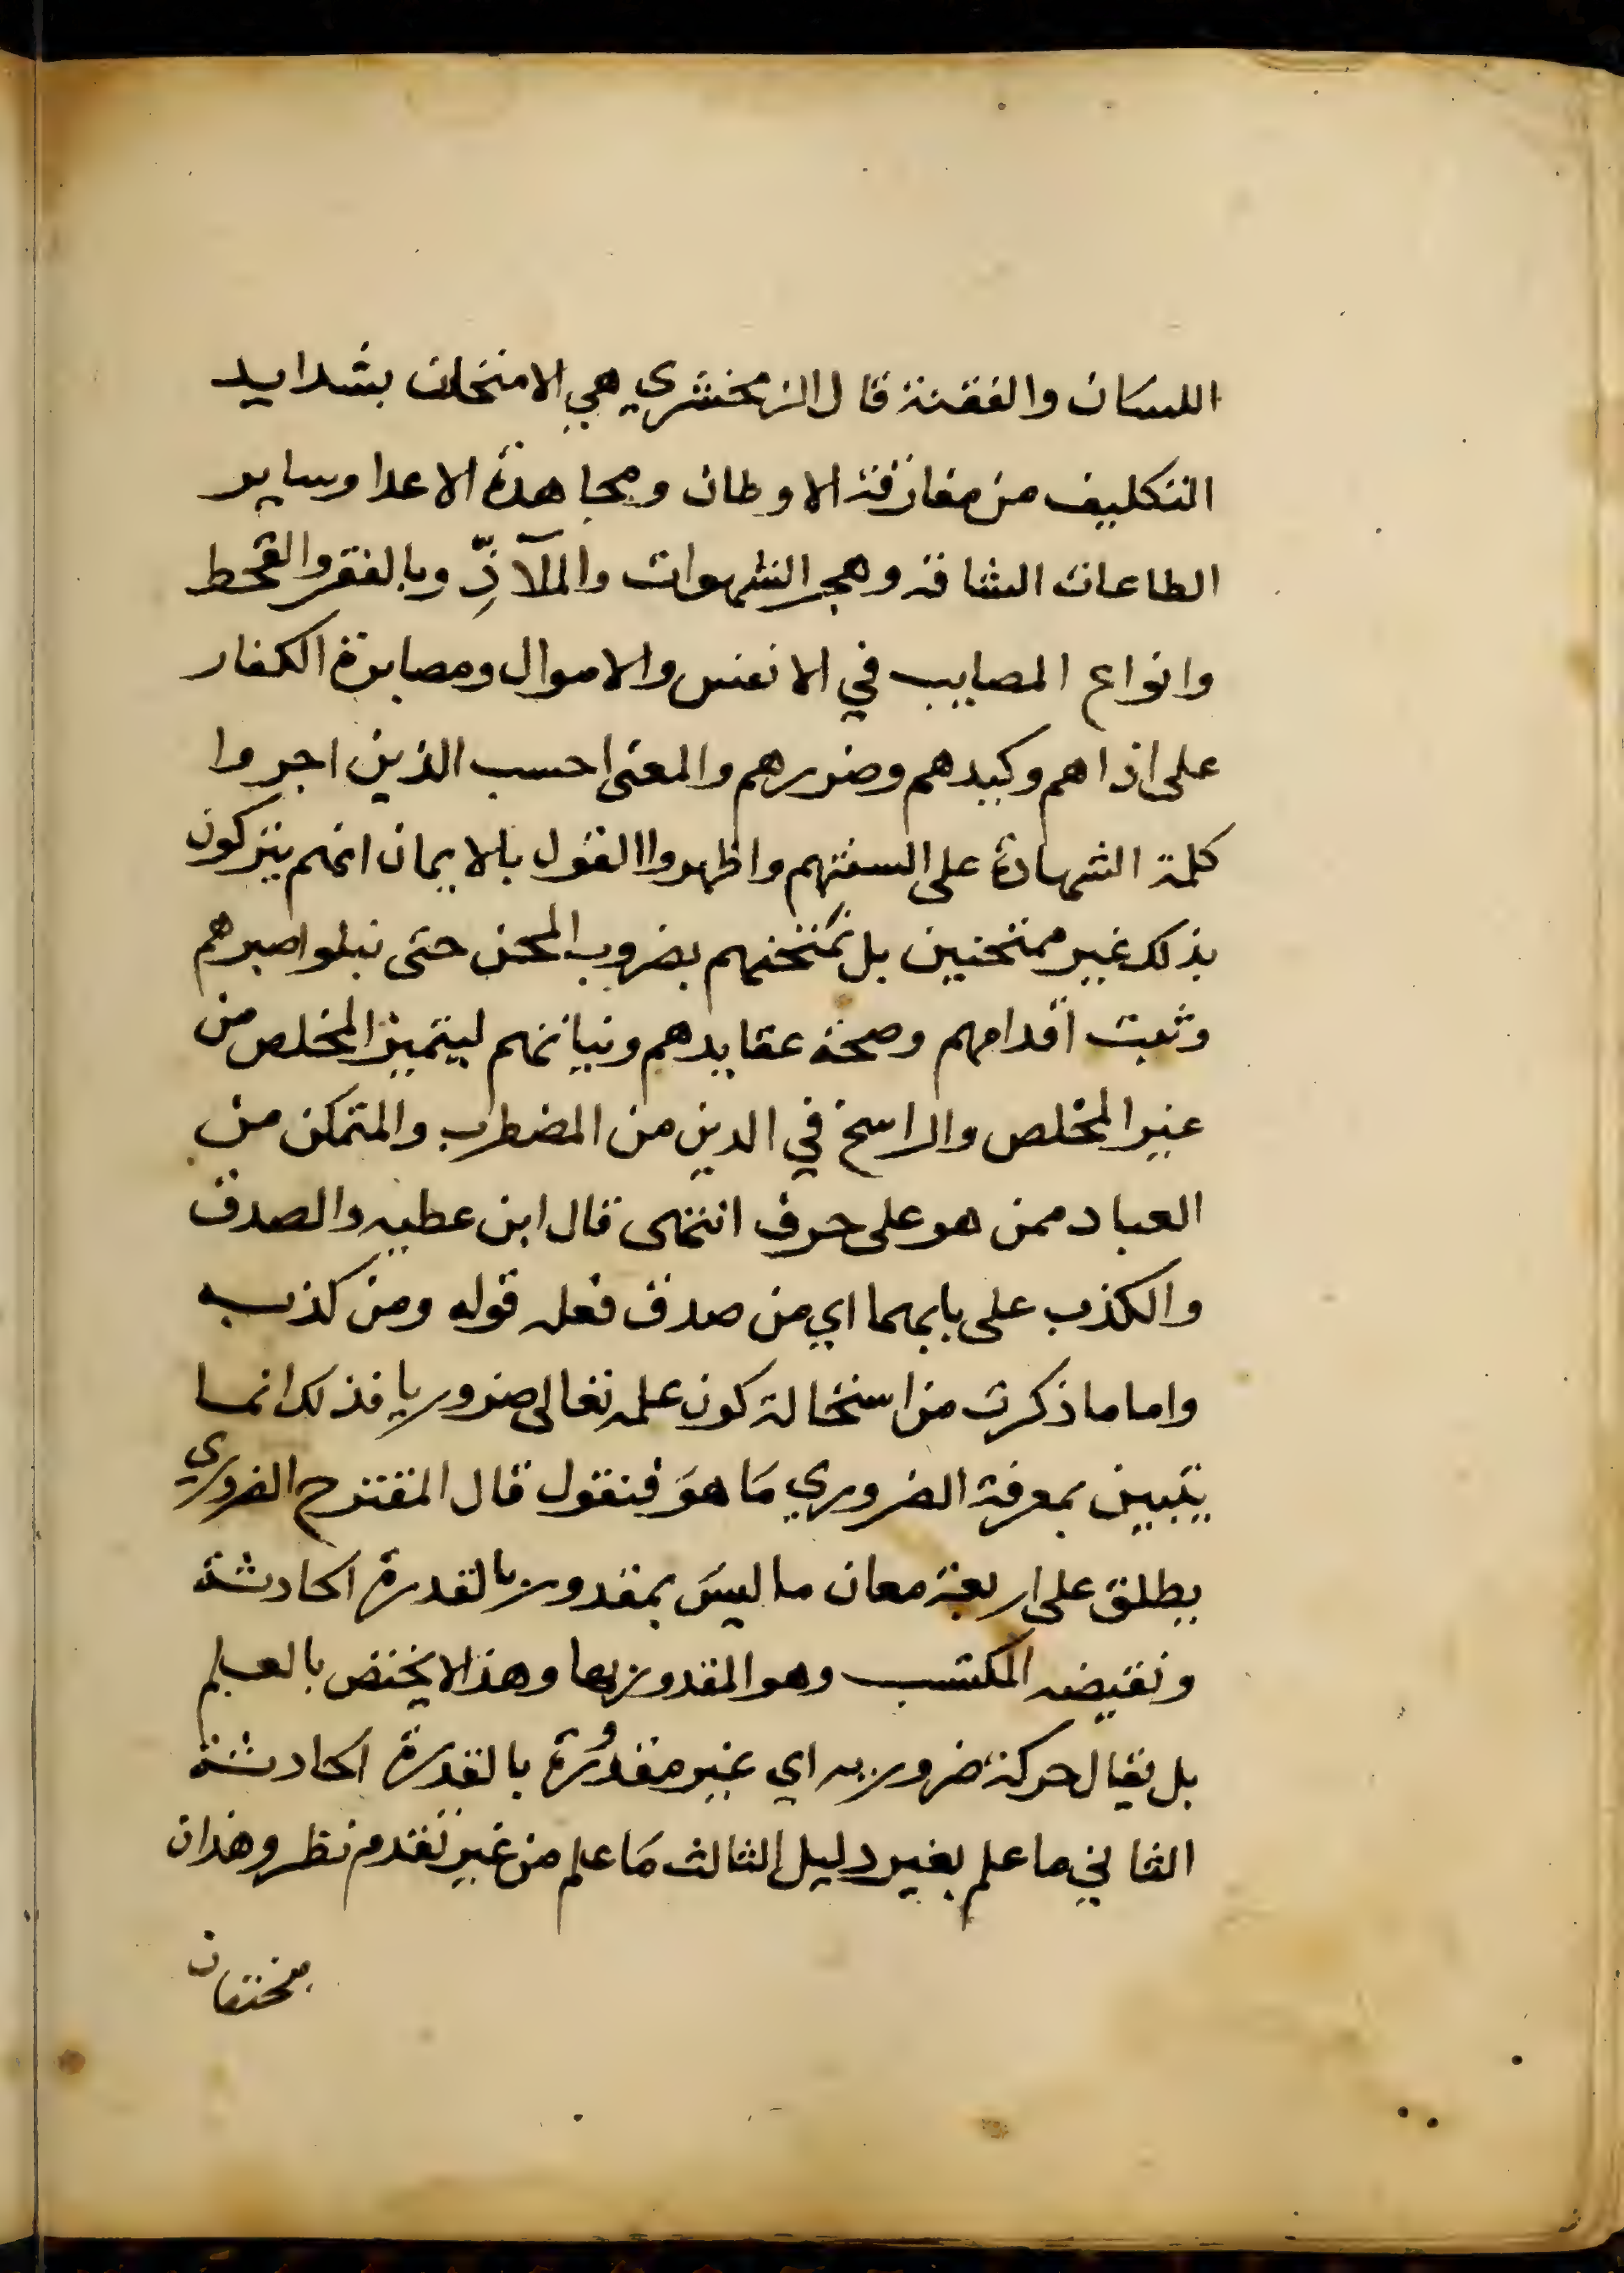 اللسان والفتنة قال الزمخشري هي الامتحان بشدايد
التكليف من مفارقة الاوطان ومجاهدة الاعدا وساير
الطاعات الشاقه وهجر الشهوات والملآذّ وبالفقر والقحط
وانواع المصايب في الانفس والاموال ومصابرة الكفار
على اذاهم وكيدهم وضررهم والمعنى احسب الذين اجروا
كلمة الشهادة على السنتهم واظهروا القول بالايمان انهم يتركون
بذلك غير ممتحنين بل نمتحنهم بضروب المحن حتى نبلوا صبرهم
وثبت اقدامهم وصحة عقايدهم ونياتهم ليتميز المخلص من
غير المخلص والراسخ في الدين من المضطرب والمتمكن من
العباد ممن هو على حرف انتهى قال ابن عطيه والصدق
والكذب على بابهما اي من صدق فعله قوله ومن كذبه
واما ما ذكرت من استحالة كون علمه تعالى ضروريا فذلك انما
يتبين بمعرفة الضروري مَا هوَ فنقول قال المقترح الضروري
يطلق على اربعة معان ما ليسَ بمقدور بالقدرة الحادثة
ونقيضه المكتسب وهو المقدور بها وهذا لا يختص بالعلم
بل يقال حركة ضروريه اي غير مقدُورة بالقدرة الحادثة
الثاني ما علم بغير دليل الثالث مَا علم من غير تقدم نظر وهذان
مختصان